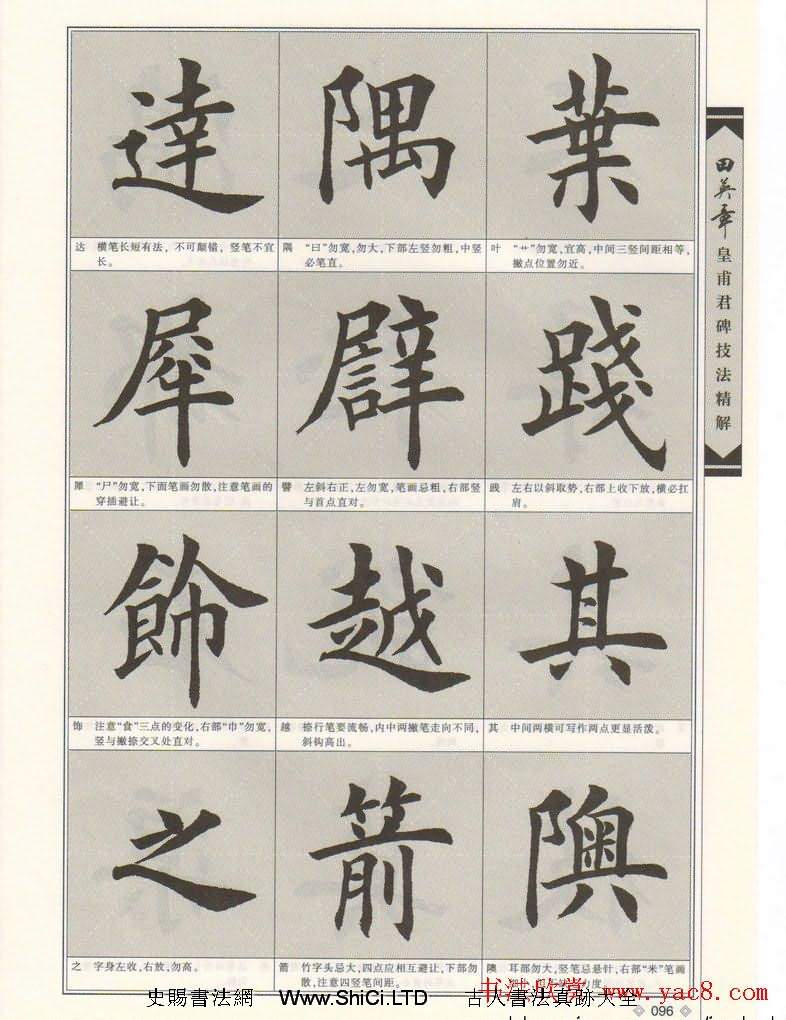 達 隅 葉
达 横笔长短有法，不可颠错，竖笔不宜
长。
隅 “曰”勿宽，勿大，下部左竖勿粗，中竖
必笔直。
叶 “艹”勿宽，宜高，中间三竖间距相等，
撇点位置勿近。
犀 譬 踐
犀 “尸”勿宽，下面笔画勿散，注意笔画的
穿插避让。
譬 左斜右正，左勿宽，笔画忌粗，右部竖
与首点直对。
践 左右以斜取势，右部上收下放，横必扛
肩。
飾 越 其
饰 注意“食”三点的变化，右部“巾”勿宽，
竖与撇捺交叉处直对。
越 捺行笔要流畅，内中两撇笔走向不同，
斜钩高出。
其 中间两横可写作两点更显活泼。
之 箭 隩
之 字身左收，右放，勿高。
箭 竹字头忌大，四点应相互避让，下部勿
散，注意四竖笔间距。
隩 耳部勿大，竖笔忌悬针，右部“米”笔画
田英章
皇甫君碑技法精解
史賜書法網 Www.ShiCi.LTD 古人書法真跡大全
书法欣赏 www.yac8.com
096